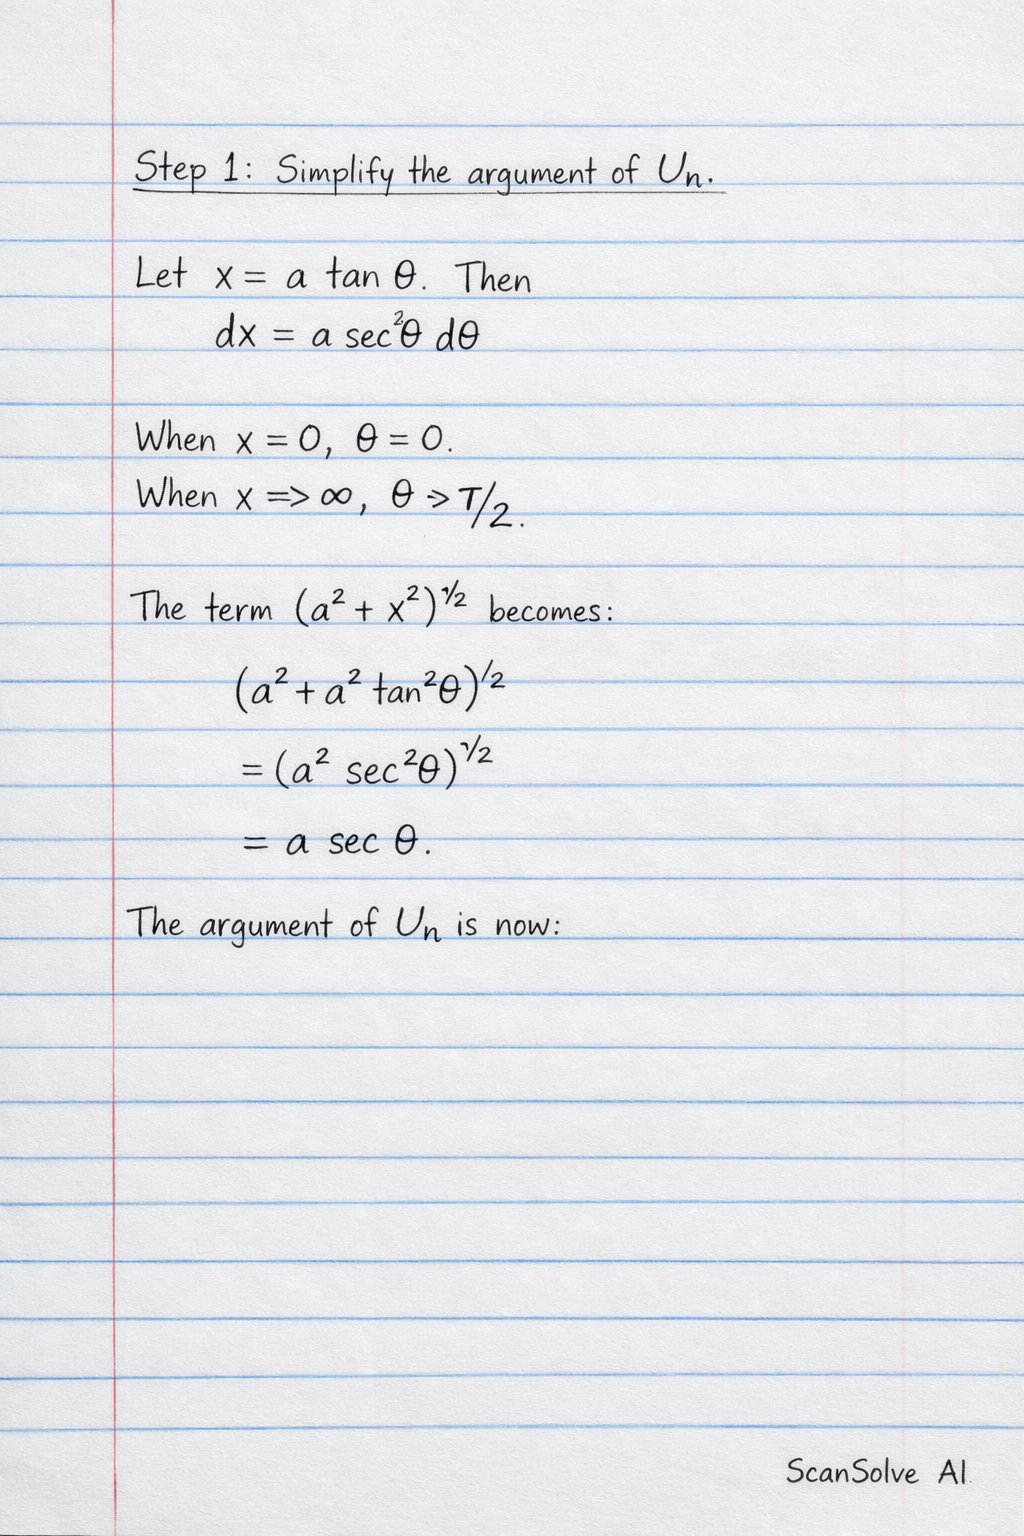 Step 1: Simplify the argument of Un.
Let x = a tan θ. Then
dx = a sec²θ dθ
When x = 0, θ = 0.
When x => ∞, θ -> T/2.
The term (a² + x²)^1/2 becomes:
(a² + a² tan²θ)^1/2
= (a² sec²θ)^1/2
= a sec θ.
The argument of Un is now:
ScanSolve AI